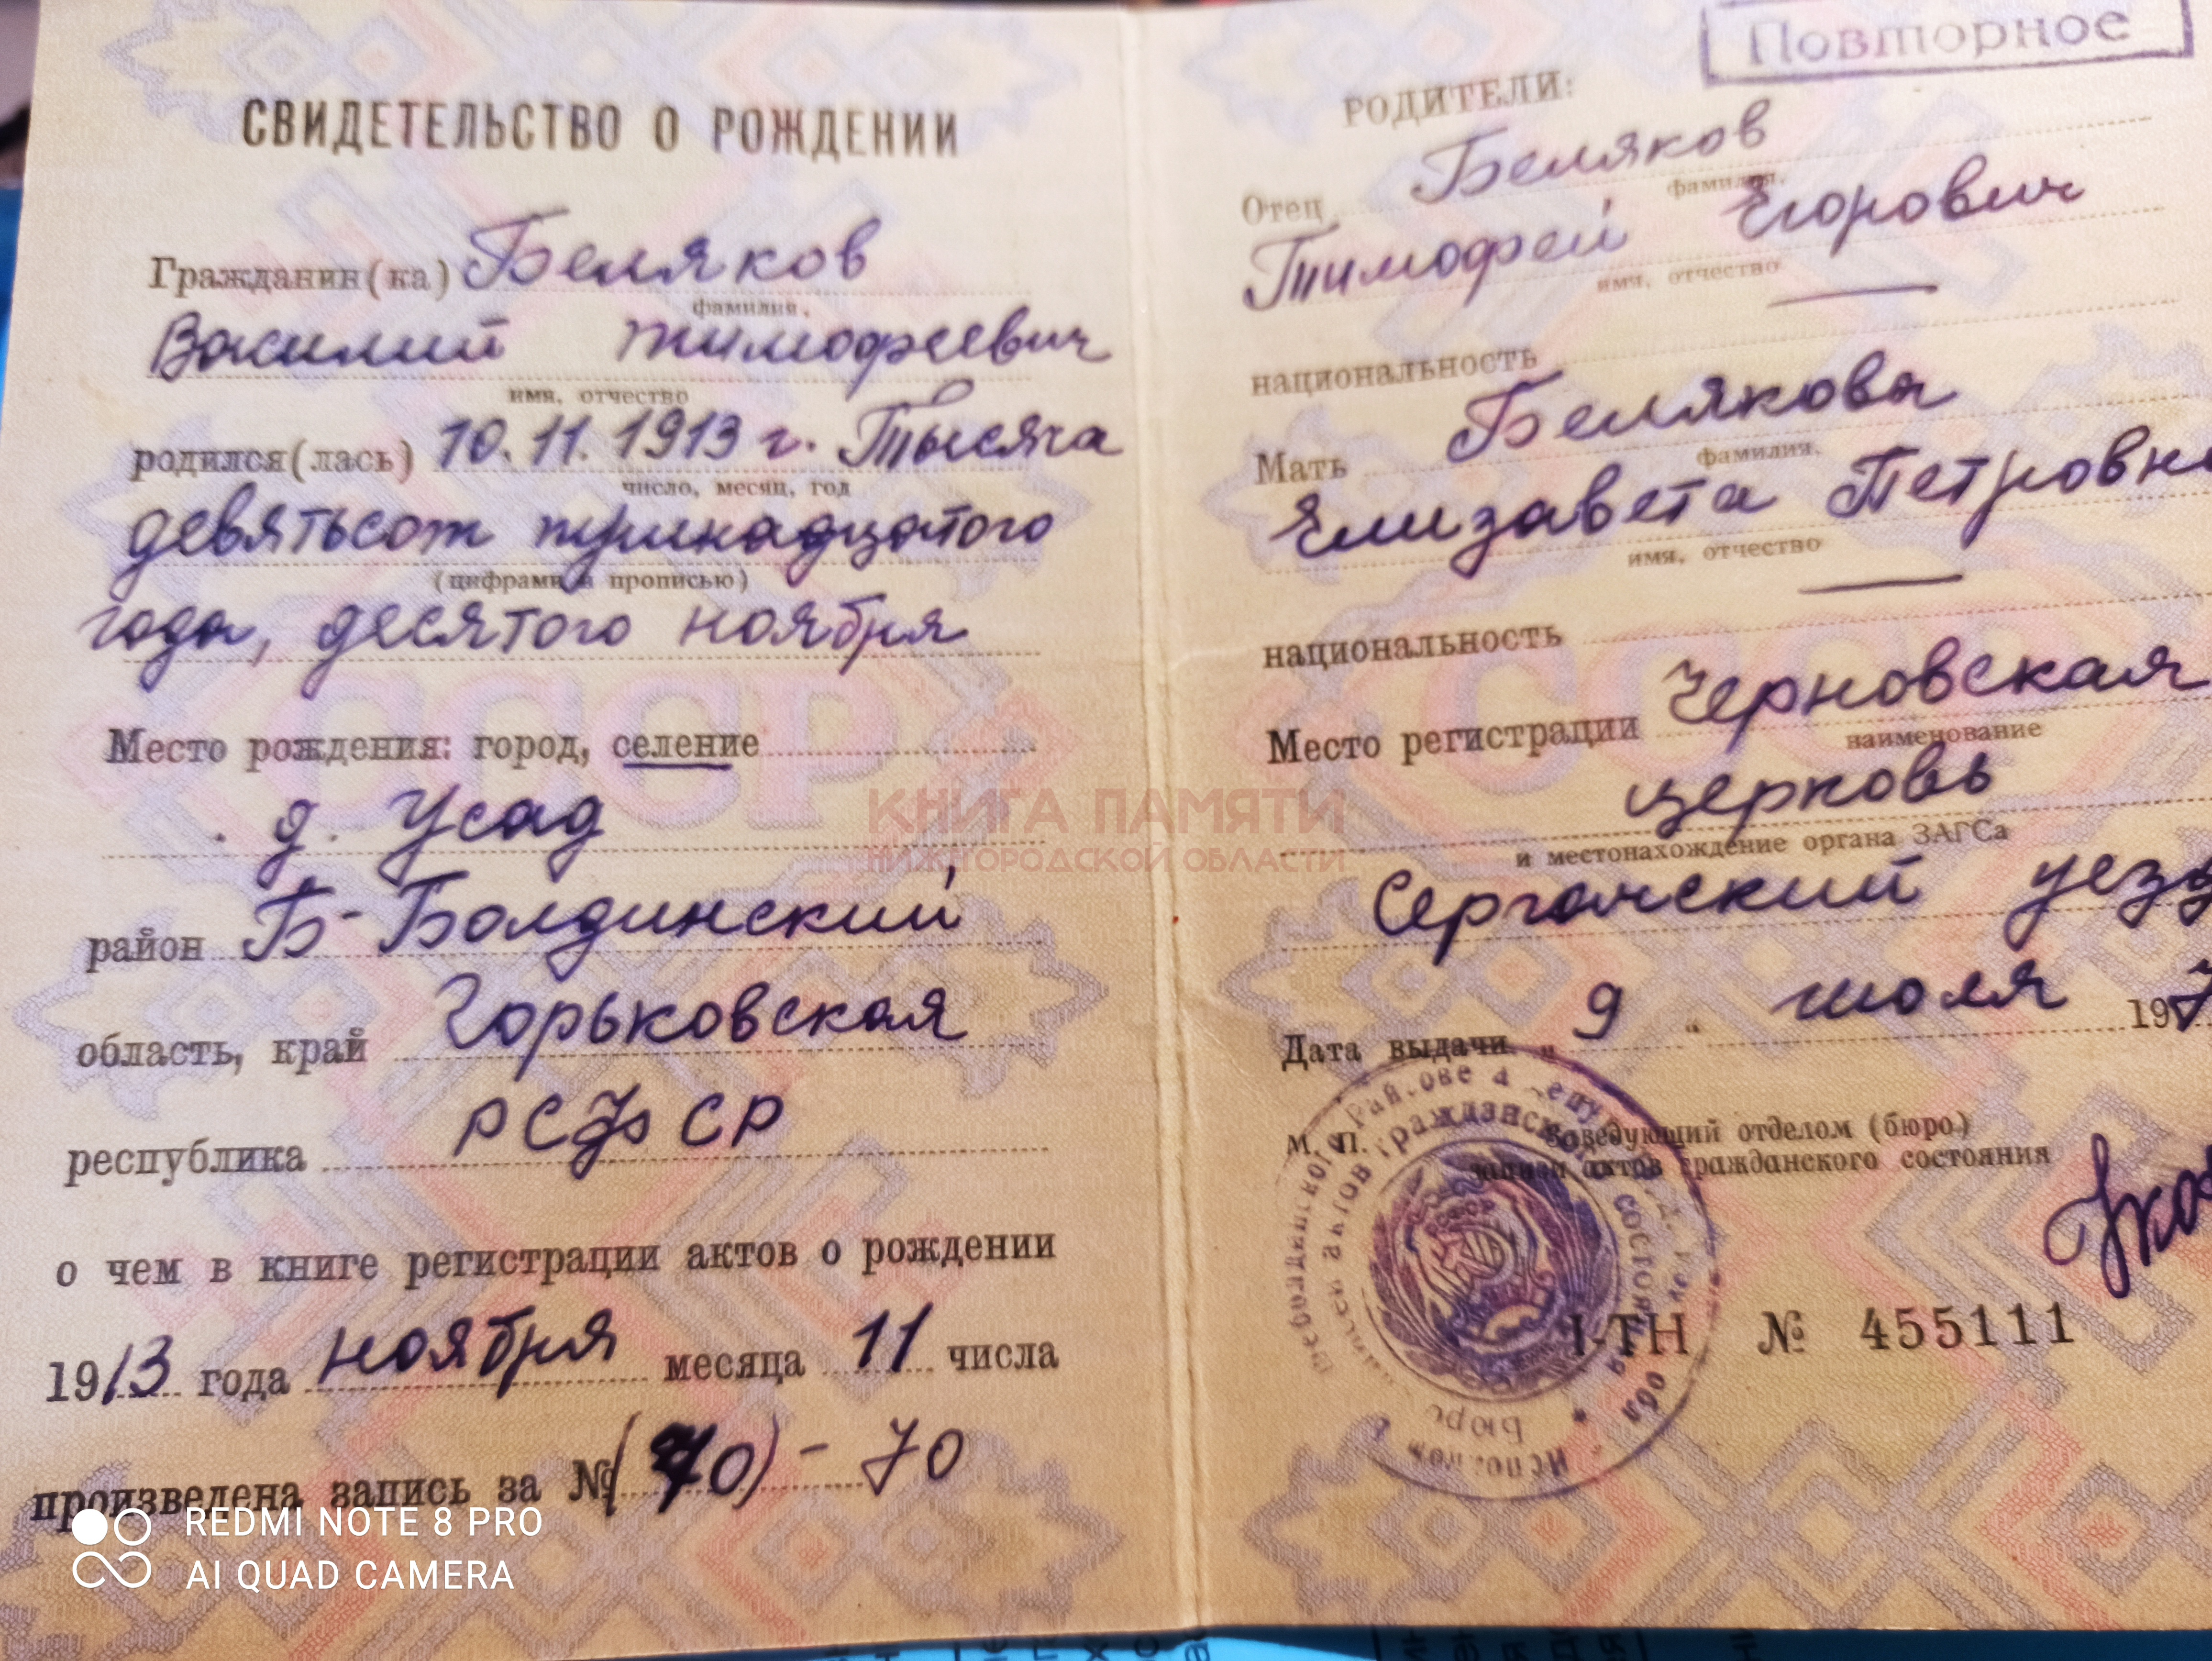 СВИДЕТЕЛЬСТВО О РОЖДЕНИИ
Гражданин(ка) Беляков
фамилия,
Василий Тимофеевич
имя, отчество
родился(лась) 10.11.1913 г. Тысяча
число, месяц, год
девятьсот тринадцатого
(цифрами и прописью)
года, десятого ноября
Место рождения: город, селение
д. Усад
район Б-Болдинский
область, край Горьковская
республика РСФСР
о чем в книге регистрации актов о рождении
1913 года ноября месяца 11 числа
произведена запись за № (70) - 70
Повторное
РОДИТЕЛИ:
Отец Беляков
фамилия,
Тимофей Егорович
имя, отчество
национальность —
Мать Белякова
фамилия,
Елизавета Петровн
имя, отчество
национальность —
Место регистрации Черновская
наименование
церковь
и местонахождение органа ЗАГСа
Сергачский уезд
Дата выдачи „ 9 “ июля 197
М. П. Заведующий отделом (бюро)
записи актов гражданского состояния
I-ТН № 455111
Бюро
КНИГА ПАМЯТИ
НИЖЕГОРОДСКОЙ ОБЛАСТИ
REDMI NOTE 8 PRO
AI QUAD CAMERA